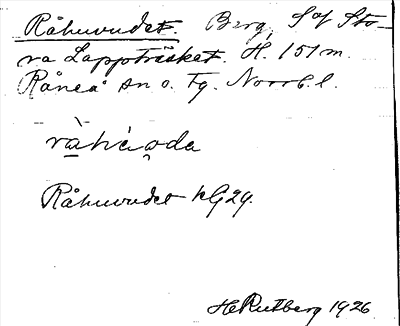 Råhuvudet. Berg, S of Sto-
ra Lappträsket. H. 151 m.
Råneå sn o. Tg. Norrb. l.
rä̀hä́ọda
Råhuvudet kG 29.
H Rutberg 1926